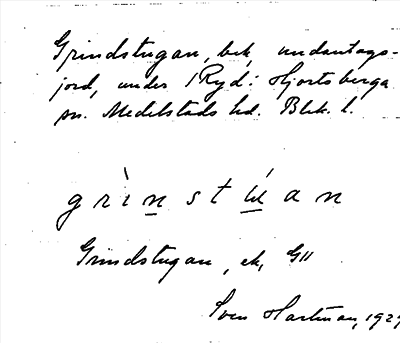 Grindstugan, bek. undantags-
jord, under 1 Ryd i Hjortsberga
sn. Medelstads hd. Blek. l.
grìn̲stú̲an
Grindstugan, ek, GII
Sven Hartman, 1929